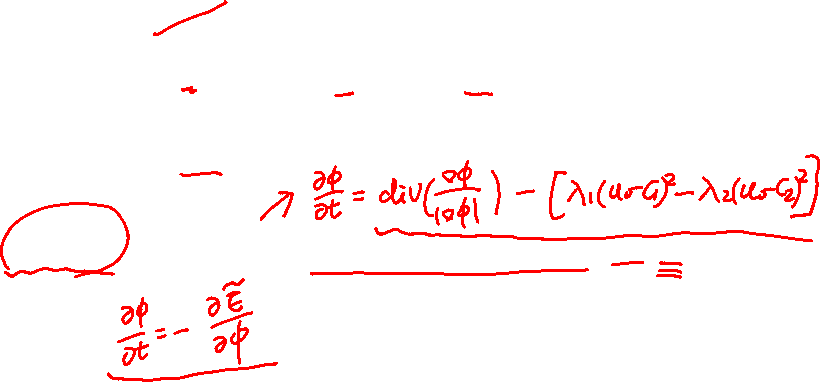 ∂φ/∂t = div(∇φ/|∇φ|) - [λ₁(u₀-C₁)² - λ₂(u₀-C₂)²]
∂φ/∂t = - ∂Ẽ/∂φ